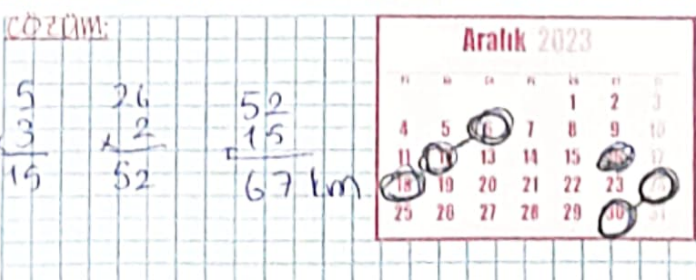 ÇÖZÜM:
5
3
15
26
x 2
52
52
15
67 km
Aralık 2023
1 2 3
4 5 6 7 8 9 10
11 12 13 14 15 16 17
18 19 20 21 22 23 24
25 26 27 28 29 30 31